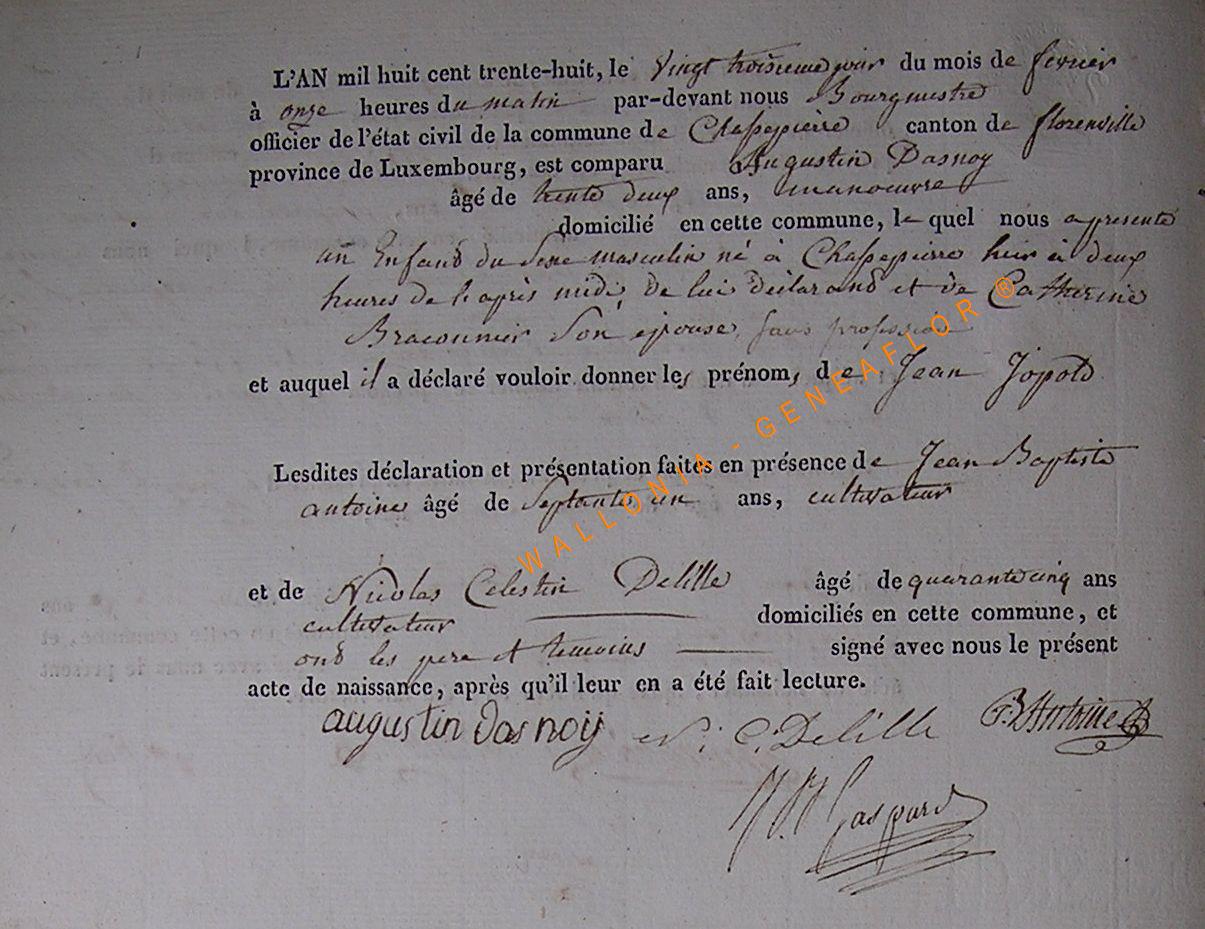 L'AN mil huit cent trente-huit, le Vingt troisieme jour du mois de fevrier
à onze heures du matin par-devant nous Bourgmestre
officier de l'état civil de la commune de Chassepierre canton de florenville
province de Luxembourg, est comparu Augustin Dasnoy
âgé de trente deux ans, manoeuvre
domicilié en cette commune, le quel nous a presente
un Enfand du Sexe masculin né à Chassepierre hier à deux
heures de l'après midi, De lui déclarand et de Catherine
Braconnier Son épouse, sans profession
et auquel il a déclaré vouloir donner les prénoms de Jean Jopold
Lesdites déclaration et présentation faites en présence de Jean Baptiste
antoine âgé de Septante un ans, cultivateur
et de Nicolas Celestin Delille âgé de quarante cinq ans
cultivateur domiciliés en cette commune, et
ond les pere et temoins signé avec nous le présent
acte de naissance, après qu'il leur en a été fait lecture.
augustin dasnoij N: C. Delille Antoine
Gaspard
WALLONIA - GENEAFLOR ®